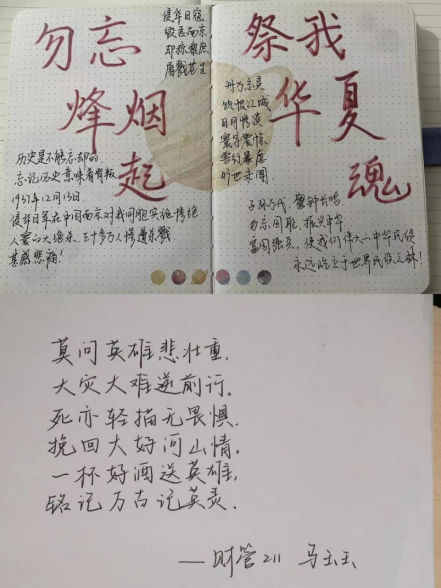 勿忘
烽烟
起
侵华日寇
毁我南京
劫掠
屠戮苍生
历史是不能忘却的
忘记历史意味着背叛
1937年12月13日
侵华日军在中国南京对我同胞实施惨绝
人寰的大屠杀、三十多万人惨遭杀戮
甚感悲痛!
祭我
华夏
魂
卅万亡灵
饮恨江城
日月惨淡
寰宇震惊
兽行暴虐
旷世未闻
子孙万代,警钟长鸣
勿忘国耻,振兴中华
富国强兵,使我们伟大中华民族
永远屹立于世界民族之林!
莫问英雄悲壮重,
大灾大难逆前行。
死亦轻描无畏惧,
挽回大好河山情。
一杯好酒送英雄,
铭记万古记英灵.
——财管211 马玉玉